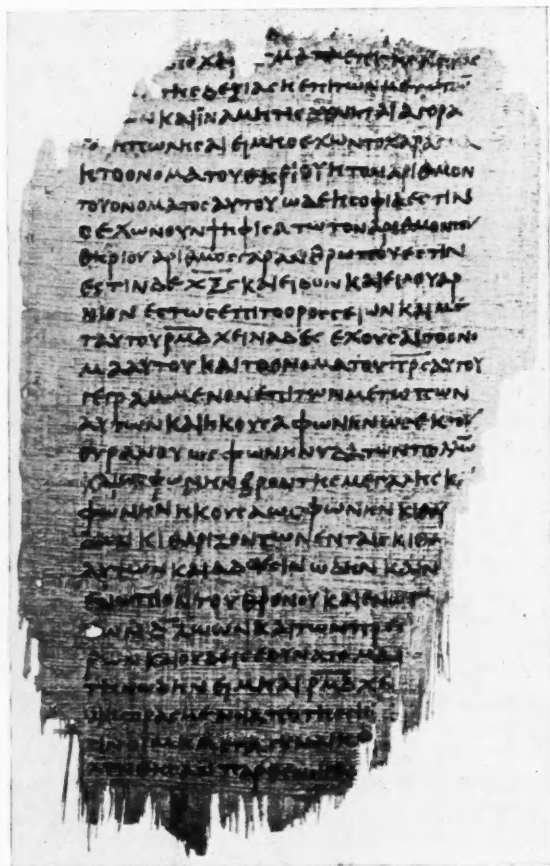 ΤΗCΔΕΞΙΑCΗΕΠΙΤΩΝΜΕΤΩΠΩ̅
ΚΑΙΪΝΑΜΗΤΙCΔΥΝΗΤΑΙΑΓΟΡΑ
ΗΠΩΛΗCΑΙΕΙΜΗΟΕΧΩΝΤΟΧΑΡΑΓΜΑ
ΗΤΟΟΝΟΜΑΤΟΥΘΗΡΙΟΥΗΤΟΝΑΡΙΘΜΟΝ
ΤΟΥΟΝΟΜΑΤΟCΑΥΤΟΥΩΔΕΗCΟΦΙΑΕCΤΙΝ
ΟΕΧΩΝΟΥΝΨΗΦΙCΑΤΩΤΟΝΑΡΙΘΜΟΝΤΟΥ
ΘΗΡΙΟΥΑΡΙΘΜΟCΓΑΡΑΝΘΡΩΠΟΥΕCΤΙΝ
ΕCΤΙΝΔΕΧ̅Ξ̅C̅ΚΑΙΕΙΔΟΝΚΑΙΕΙΔΟΥΑΡ
ΝΙΟΝΕCΤΩCΕΠΙΤΟΟΡΟCCΕΙΩΝΚΑΙΜΕ
ΤΑΥΤΟΥΡ̅Μ̅Δ̅ΧΕΙΛΙΑΔΕCΕΧΟΥCΑΙΤΟΟΝΟ
ΜΑΑΥΤΟΥΚΑΙΤΟΟΝΟΜΑΤΟΥΠ̅Ρ̅C̅ΑΥΤΟΥ
ΓΕΓΡΑΜΜΕΝΟΝΕΠΙΤΩΝΜΕΤΩΠΩΝ
ΑΥΤΩΝΚΑΙΗΚΟΥCΑΦΩΝΗΝΩCΕΚΤΟΥ
ΟΥΡΑΝΟΥΩCΦΩΝΗΝΥΔΑΤΩΝΠΟΛΛΩ̅
ΦΩΝΗΝΒΡΟΝΤΗCΜΕΓΑΛΗCΚ
ΦΩΝΗΝΗΚΟΥCΑΩCΦΩΝΗΝΚΙΘΑ
ΚΙΘΑΡΙΖΟΝΤΩΝΕΝΤΑΙCΚΙΘΑ
ΑΥΤΩΝΚΑΙΑΔΟΥCΙΝΩΔΗΝΚΑΙΝ
ΕΝΩΠΙΟΝΤΟΥΘΡΟΝΟΥΚΑΙΕΝΩΠΙ
ΖΩΩΝΚΑΙΤΩΝΠΡΕC
ΡΩΝΚΑΙΟΥΔΕΙCΕΔΥΝΑΤΟΜΑΘ
ΤΗΝΩΔΗΝΕΙΜΗΑΙΡ̅Μ̅Δ̅ΧΕΙ